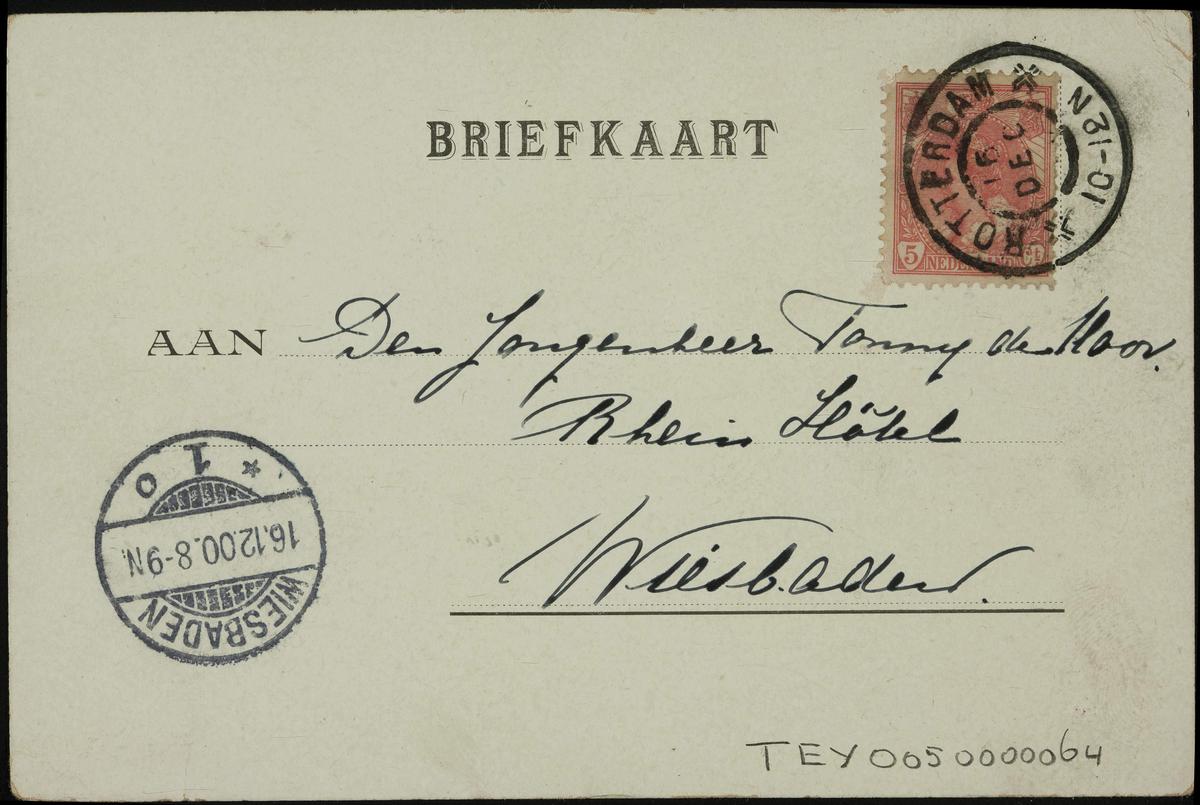 BRIEFKAART
ROTTERDAM
10-12N
16
DEC
5 NEDERLAND Ct.
AAN Den Jongenheer Tonny de Koor.
Rhein Hôtel
Wiesbaden.
1 o
16.12.00.8-9N.
WIESBADEN
TEY0050000064